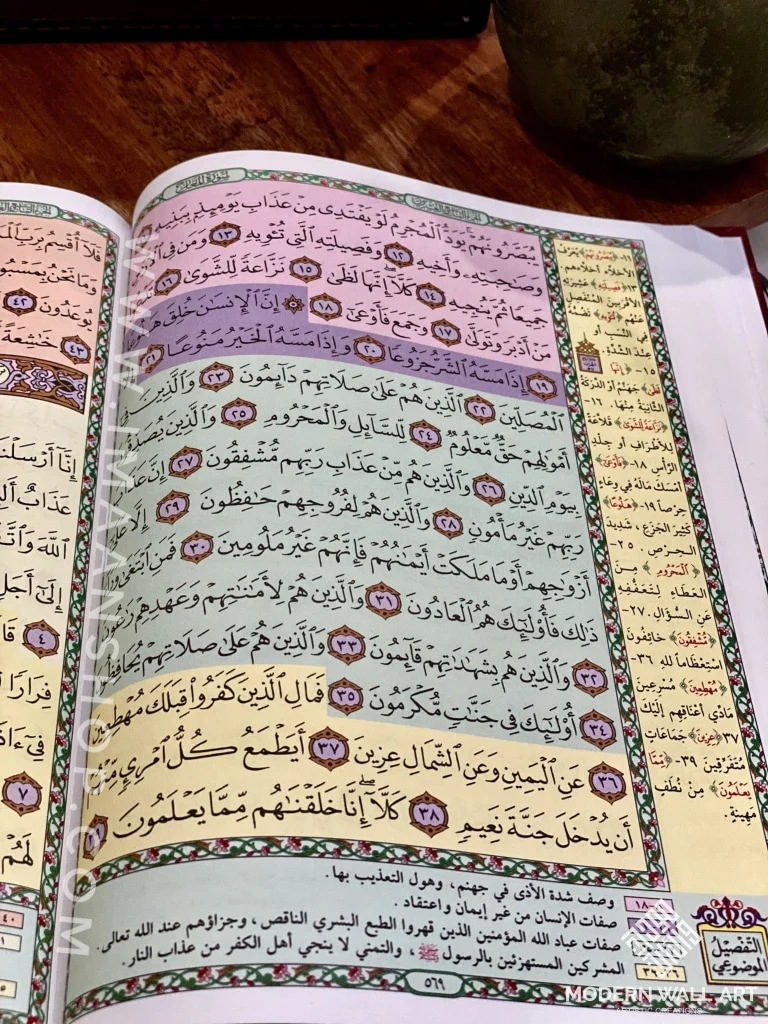 سورة المعارج
يُبَصَّرُونَهُمْ يَوَدُّ ٱلْمُجْرِمُ لَوْ يَفْتَدِى مِنْ عَذَابِ يَوْمِئِذٍۭ بِبَنِيهِ
وَصَٰحِبَتِهِۦ وَأَخِيهِ ١٢ وَفَصِيلَتِهِ ٱلَّتِى تُـْٔوِيهِ ١٣ وَمَن فِى
جَمِيعًا ثُمَّ يُنجِيهِ ١٤ كَلَّآ إِنَّهَا لَظَىٰ ١٥ نَزَّاعَةً لِّلشَّوَىٰ ١٦
مَنْ أَدْبَرَ وَتَوَلَّىٰ ١٧ وَجَمَعَ فَأَوْعَىٰٓ ١٨ ۞ إِنَّ ٱلْإِنسَٰنَ خُلِقَ هَلُوعًا
١٩ إِذَا مَسَّهُ ٱلشَّرُّ جَزُوعًا ٢٠ وَإِذَا مَسَّهُ ٱلْخَيْرُ مَنُوعًا ٢١
ٱلْمُصَلِّينَ ٢٢ ٱلَّذِينَ هُمْ عَلَىٰ صَلَاتِهِمْ دَآئِمُونَ ٢٣ وَٱلَّذِينَ فِىٓ
أَمْوَٰلِهِمْ حَقٌّ مَّعْلُومٌ ٢٤ لِّلسَّآئِلِ وَٱلْمَحْرُومِ ٢٥ وَٱلَّذِينَ يُصَدِّقُونَ
بِيَوْمِ ٱلدِّينِ ٢٦ وَٱلَّذِينَ هُم مِّنْ عَذَابِ رَبِّهِم مُّشْفِقُونَ ٢٧ إِنَّ عَذَابَ
رَبِّهِمْ غَيْرُ مَأْمُونٍ ٢٨ وَٱلَّذِينَ هُمْ لِفُرُوجِهِمْ حَٰفِظُونَ ٢٩ إِلَّا عَلَىٰٓ
أَزْوَٰجِهِمْ أَوْ مَا مَلَكَتْ أَيْمَٰنُهُمْ فَإِنَّهُمْ غَيْرُ مَلُومِينَ ٣٠ فَمَنِ ٱبْتَغَىٰ وَرَآءَ
ذَٰلِكَ فَأُو۟لَٰٓئِكَ هُمُ ٱلْعَادُونَ ٣١ وَٱلَّذِينَ هُمْ لِأَمَٰنَٰتِهِمْ وَعَهْدِهِمْ رَٰعُونَ
٣٢ وَٱلَّذِينَ هُم بِشَهَٰدَٰتِهِمْ قَآئِمُونَ ٣٣ وَٱلَّذِينَ هُمْ عَلَىٰ صَلَاتِهِمْ يُحَافِظُونَ
٣٤ أُو۟لَٰٓئِكَ فِى جَنَّٰتٍ مُّكْرَمُونَ ٣٥ فَمَالِ ٱلَّذِينَ كَفَرُوا۟ قِبَلَكَ مُهْطِعِينَ
٣٦ عَنِ ٱلْيَمِينِ وَعَنِ ٱلشِّمَالِ عِزِينَ ٣٧ أَيَطْمَعُ كُلُّ ٱمْرِئٍ مِّنْهُمْ
أَن يُدْخَلَ جَنَّةَ نَعِيمٍ ٣٨ كَلَّآ إِنَّا خَلَقْنَٰهُم مِّمَّا يَعْلَمُونَ ٣٩
١١- ﴿يُبَصَّرُونَهُمْ﴾ يُعَرَّف
الأخلاء أخلاءهم.
١٣- فصيلته: عشيرته
الأقربين المنفصل
عنهم. ﴿تؤويه﴾ تضمه
في النسب أو
عند الشدة.
١٥- ﴿إنها
لظى﴾ جهنم أو الدركة
الثانية منها. ١٦-
﴿نزاعة للشوى﴾ قلاعة
للأطراف أو جلد
الرأس. ١٨- ﴿فأوعى﴾
أمسك ماله في وعاء
حرصاً. ١٩- ﴿هلوعا﴾
كثير الجزع، شديد
الحرص. ٢٥-
﴿المحروم﴾ من
العطاء لتعففه
عن السؤال. ٢٧-
﴿مشفقون﴾ خائفون
استعظاماً لله. ٣٦-
﴿مهطعين﴾ مسرعين
مادي أعناقهم إليك.
٣٧- ﴿عزين﴾ جماعات
متفرقين. ٣٩- ﴿مما
يعلمون﴾ من نُطَفٍ
مهينة.
التفصيل الموضوعي
١٨ وصف شدة الأذى في جهنم، وهول التعذيب بها.
صفات الإنسان من غير إيمان واعتقاد.
صفات عباد الله المؤمنين الذين قهروا الطبع البشري الناقص، وجزاؤهم عند الله تعالى.
٣٩-٣٦ المشركين المستهزئين بالرسول ﷺ، والتمني لا ينجي أهل الكفر من عذاب النار.
٥٦٩
فَلَآ أُقْسِمُ بِرَبِّ
وَمَا نَحْنُ بِمَسْبُوقِينَ
يُوعَدُونَ ٤٢
٤٣ خَٰشِعَةً
إِنَّآ أَرْسَلْنَا
عَذَابٌ
ٱللَّهَ وَٱتَّقُوهُ
إِلَىٰٓ أَجَلٍ
٤ قَالَ
فِرَارًا
فِىٓ ءَاذَانِهِمْ
٧
لَهُمْ
WWW.IMAANSHOP.COM
MODERN WALL ART
ARTISTIC CREATIONS